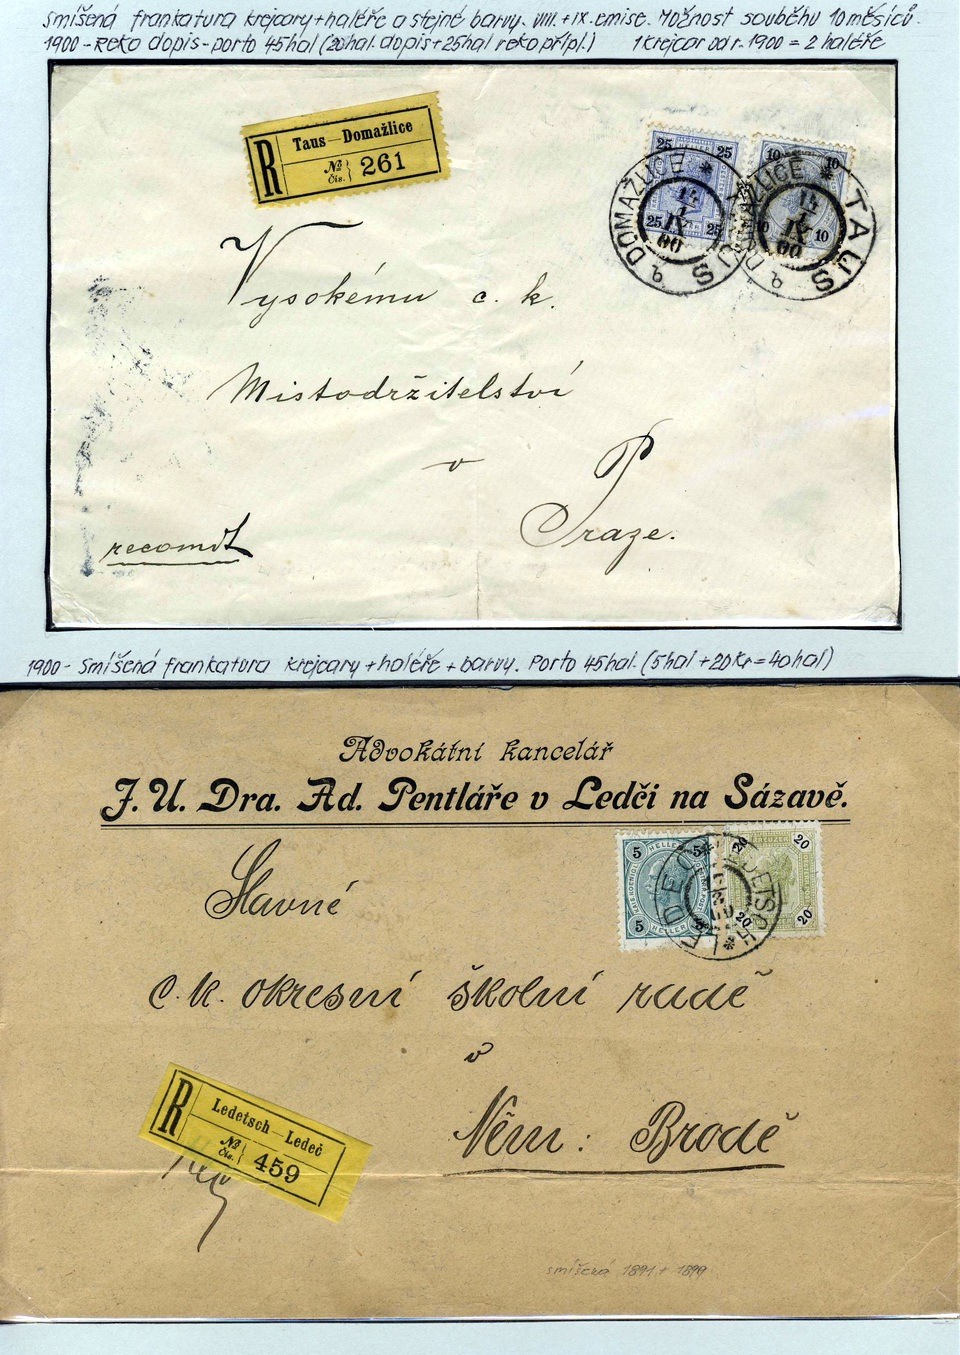 Smíšená frankatura krejcary+haléře a stejné barvy. VIII.+IX.emise. Možnost souběhu 10měsíců.
1900-Reko dopis-porto 45hal(20hal.dopis+25hal reko přípl.) 1 krejcar od r. 1900 = 2 haléře
R Taus - Domažlice
№ Čís. 261
25 25 10 10
25 25 10 10
DOMAŽLICE * TAUS b
14 IX 00
DOMAŽLICE * TAUS b
14 IX 00
Vysokému c. k.
Mistodržitelství
v
Praze.
recomdt
1900- Smíšená frankatura krejcary+haléře+barvy. Porto 45hal.(5hal+20kr=40hal)
Advokátní kancelář
J. U. Dra. Ad. Pentláře v Ledči na Sázavě.
5 HELLER 5 20 20
5 HELLER 20 20
LEDEČ LEDETSCH
Slavné
c. k. okresní školní radě
v
Něm: Brodě
R Ledetsch - Ledeč
№ Čís. 459
smíšená 1891 + 1899